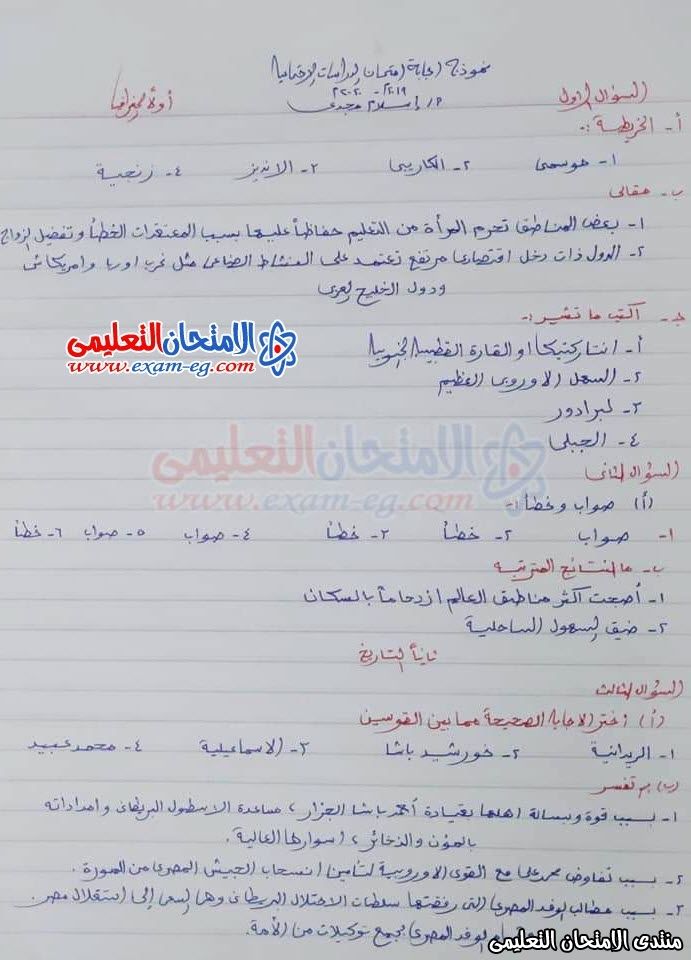 نموذج إجابة امتحان الدراسات الاجتماعية
٢٠١٩ - ٢٠٢٠
م/ إسلام مجدى
السؤال الأول
أولاً الجغرافيا
أ- الخريطة :-
١- موسمى ٢- الكاريبى ٣- الانديز ٤- زنجية
ب- مقالى
١- بعض المناطق تحرم المرأة من التعليم حفاظاً عليها بسبب المعتقدات الخطأ وتفضيل الزواج
٢- الدول ذات دخل اقتصادى مرتفع تعتمد على النشاط الصناعى مثل غرب اوربا وامريكا
ودول الخليج العربى
جـ- أكتب ما تشير :-
أ- انتاركتيكا او القارة القطبية الجنوبية
٢- السهل الاوروبى العظيم
٣- لبرادور
٤- الجبلى
الامتحان التعليمى
www.exam-eg.com
الامتحان التعليمى
www.exam-eg.com
السؤال الثانى
(أ) صواب وخطأ :-
١- صواب ٢- خطأ ٣- خطأ ٤- صواب ٥- صواب ٦- خطأ
ب- ما النتائج المترتبة
١- أصبحت اكثر مناطق العالم ازدحاماً بالسكان
٢- ضيق السهول الساحلية
ثانياً التاريخ
السؤال الثالث
(أ) اختر الاجابة الصحيحة مما بين القوسين
١- الريدانية ٢- خورشيد باشا ٣- الاسماعيلية ٤- محمد عبيد
(ب) بم تفسر
١- بسبب قوة وبسالة اهلها بقيادة أحمد باشا الجزار، مساعدة الاسطول البريطانى وامداداته
بالمؤن والذخائر، اسوارها العالية.
٢- بسبب تفاوض محمد على مع القوى الاوروبية لتأمين انسحاب الجيش المصرى من المورة.
٣- بسبب مطالب الوفد المصرى التى رفضتها سلطات الاحتلال البريطانى وهى السعى إلى استقلال مصر.
الوفد المصرى بجمع توكيلات من الأمة.
منتدى الامتحان التعليمى